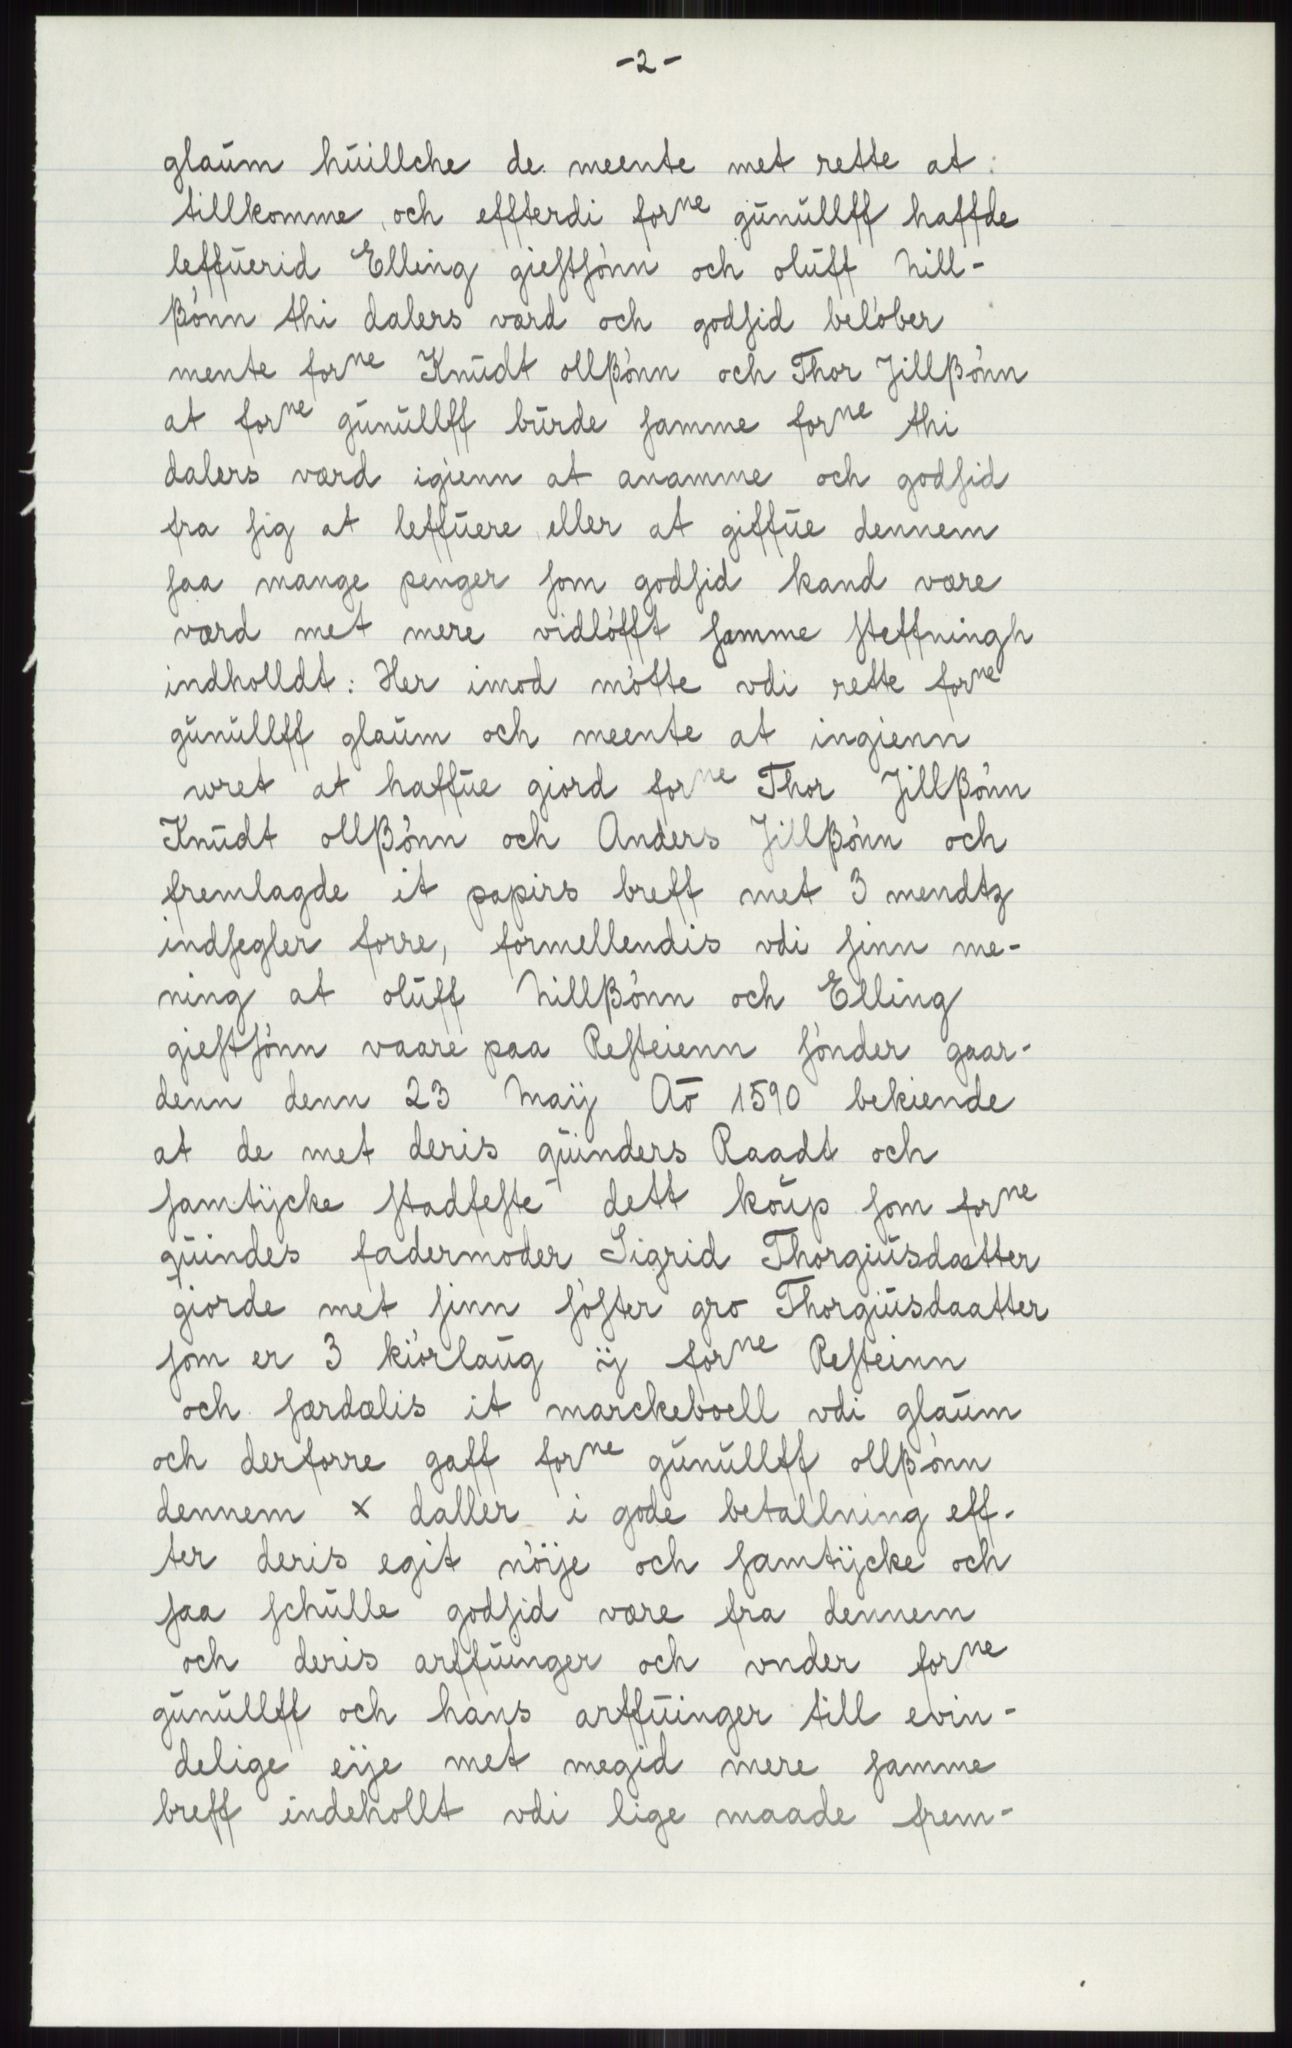 -2-
glaum huillche de meente met rette at
tillkomme, och effterdi forne gunullff haffde
leffuerid Elling giestsónn och oluff Nill-
ßónn thi dalers værd och godsid belóber
mente forne Knudt ollßónn och Thor Jillßónn
at forne gunullff burde samme forne thi
dalers værd igienn at anamme och godsid
fra sig at leffuere eller at giffue dennem
saa mange penger som godsid kand være
værd met mere vidlófft samme steffningh
indholldt: Her imod mótte vdi rette forne
gunullff glaum och meente at ingienn
wret at haffue giord forne Thor Jillßónn
Knudt ollßónn och Anders Jillßónn och
fremlagde it papirs breff met 3 mendtz
indsegler forre, formellendis vdi sinn me-
ning at oluff Nillßónn och Elling
giestsónn vaare paa Resteienn sónder gaar-
denn denn 23 Maij Aō 1590 bekiende
at de met deris quinders Raadt och
samtÿcke stadfeste dett kóup som forne
quindes fadermoder Sigrid Thorgiusdaatter
giorde met sinn sóster gro Thorgiusdaatter
som er 3 kiórlaug ÿ forne Resteinn
och særdælis it marckeboell vdi glaum
och derforre gaff forne gunullff ollßónn
dennem x daller i gode betallning eff-
ter deris egit nóije och samtÿcke och
saa schulle godsid være fra dennem
och deris arffuinger och vnder forne
gunullff och hans arffuinger till evin-
delige eije met megid mere samme
breff indehollt vdi lige maade frem-